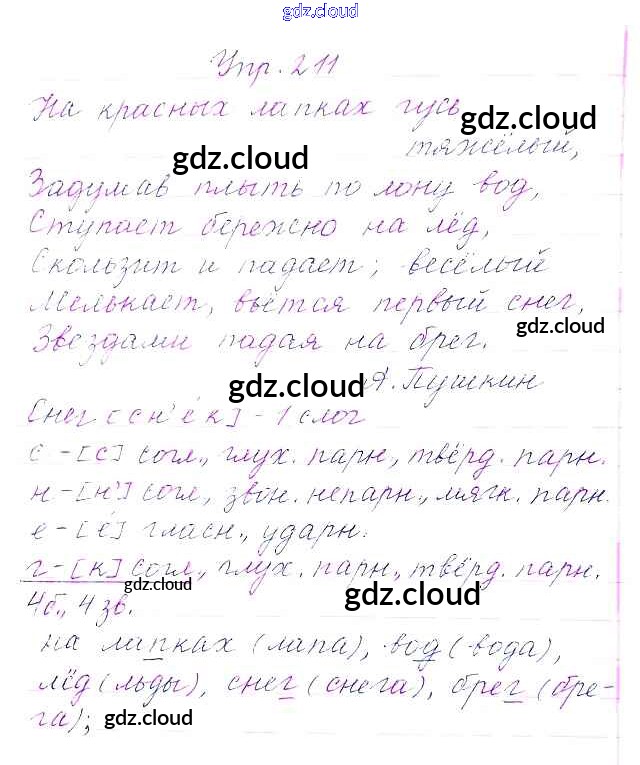 gdz.cloud
Упр. 211
На красных лапках гусь
gdz.cloud
тяжёлый,
gdz.cloud
Задумав плыть по лону вод,
Ступает бережно на лёд,
gdz.cloud
Скользит и падает; весёлый
Мелькает, вьётся первый снег,
gdz.cloud
Звездами падая на брег.
gdz.cloud
А. Пушкин
Снег [сн'éк] - 1 слог
с - [с] согл., глух. парн., твёрд. парн.
gdz.cloud
н - [н'] согл., звон. непарн., мягк. парн.
gdz.cloud
е - [é] гласн., ударн.
г - [к] согл., глух. парн., твёрд. парн.
gdz.cloud
4б., 4 зв.
gdz.cloud
на лапках (лапа), вод (вода),
лёд (льды), снег (снега), брег (бре-
га);
gdz.cloud